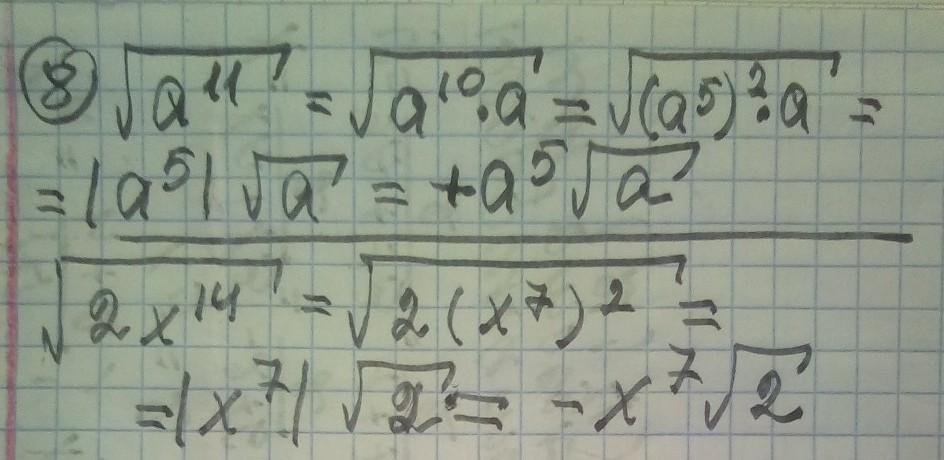 ⑧ √a¹¹ = √a¹⁰·a = √(a⁵)²·a =
= |a⁵| √a = +a⁵√a
√2x¹⁴ = √2(x⁷)² =
= |x⁷| √2 = -x⁷√2